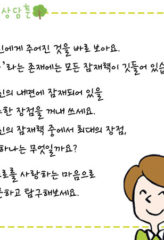 상담훈
인에게 주어진 것을 바로 보아요.
"라는 존재에는 모든 잠재력이 깃들어 있습
인의 내면에 잠재되어 있을
한 장점을 꺼내 쓰세요.
인의 잠재력 중에서 최대의 장점,
하나는 무엇일까요?
로를 사랑하는 마음으로
하고 탐구해보세요.